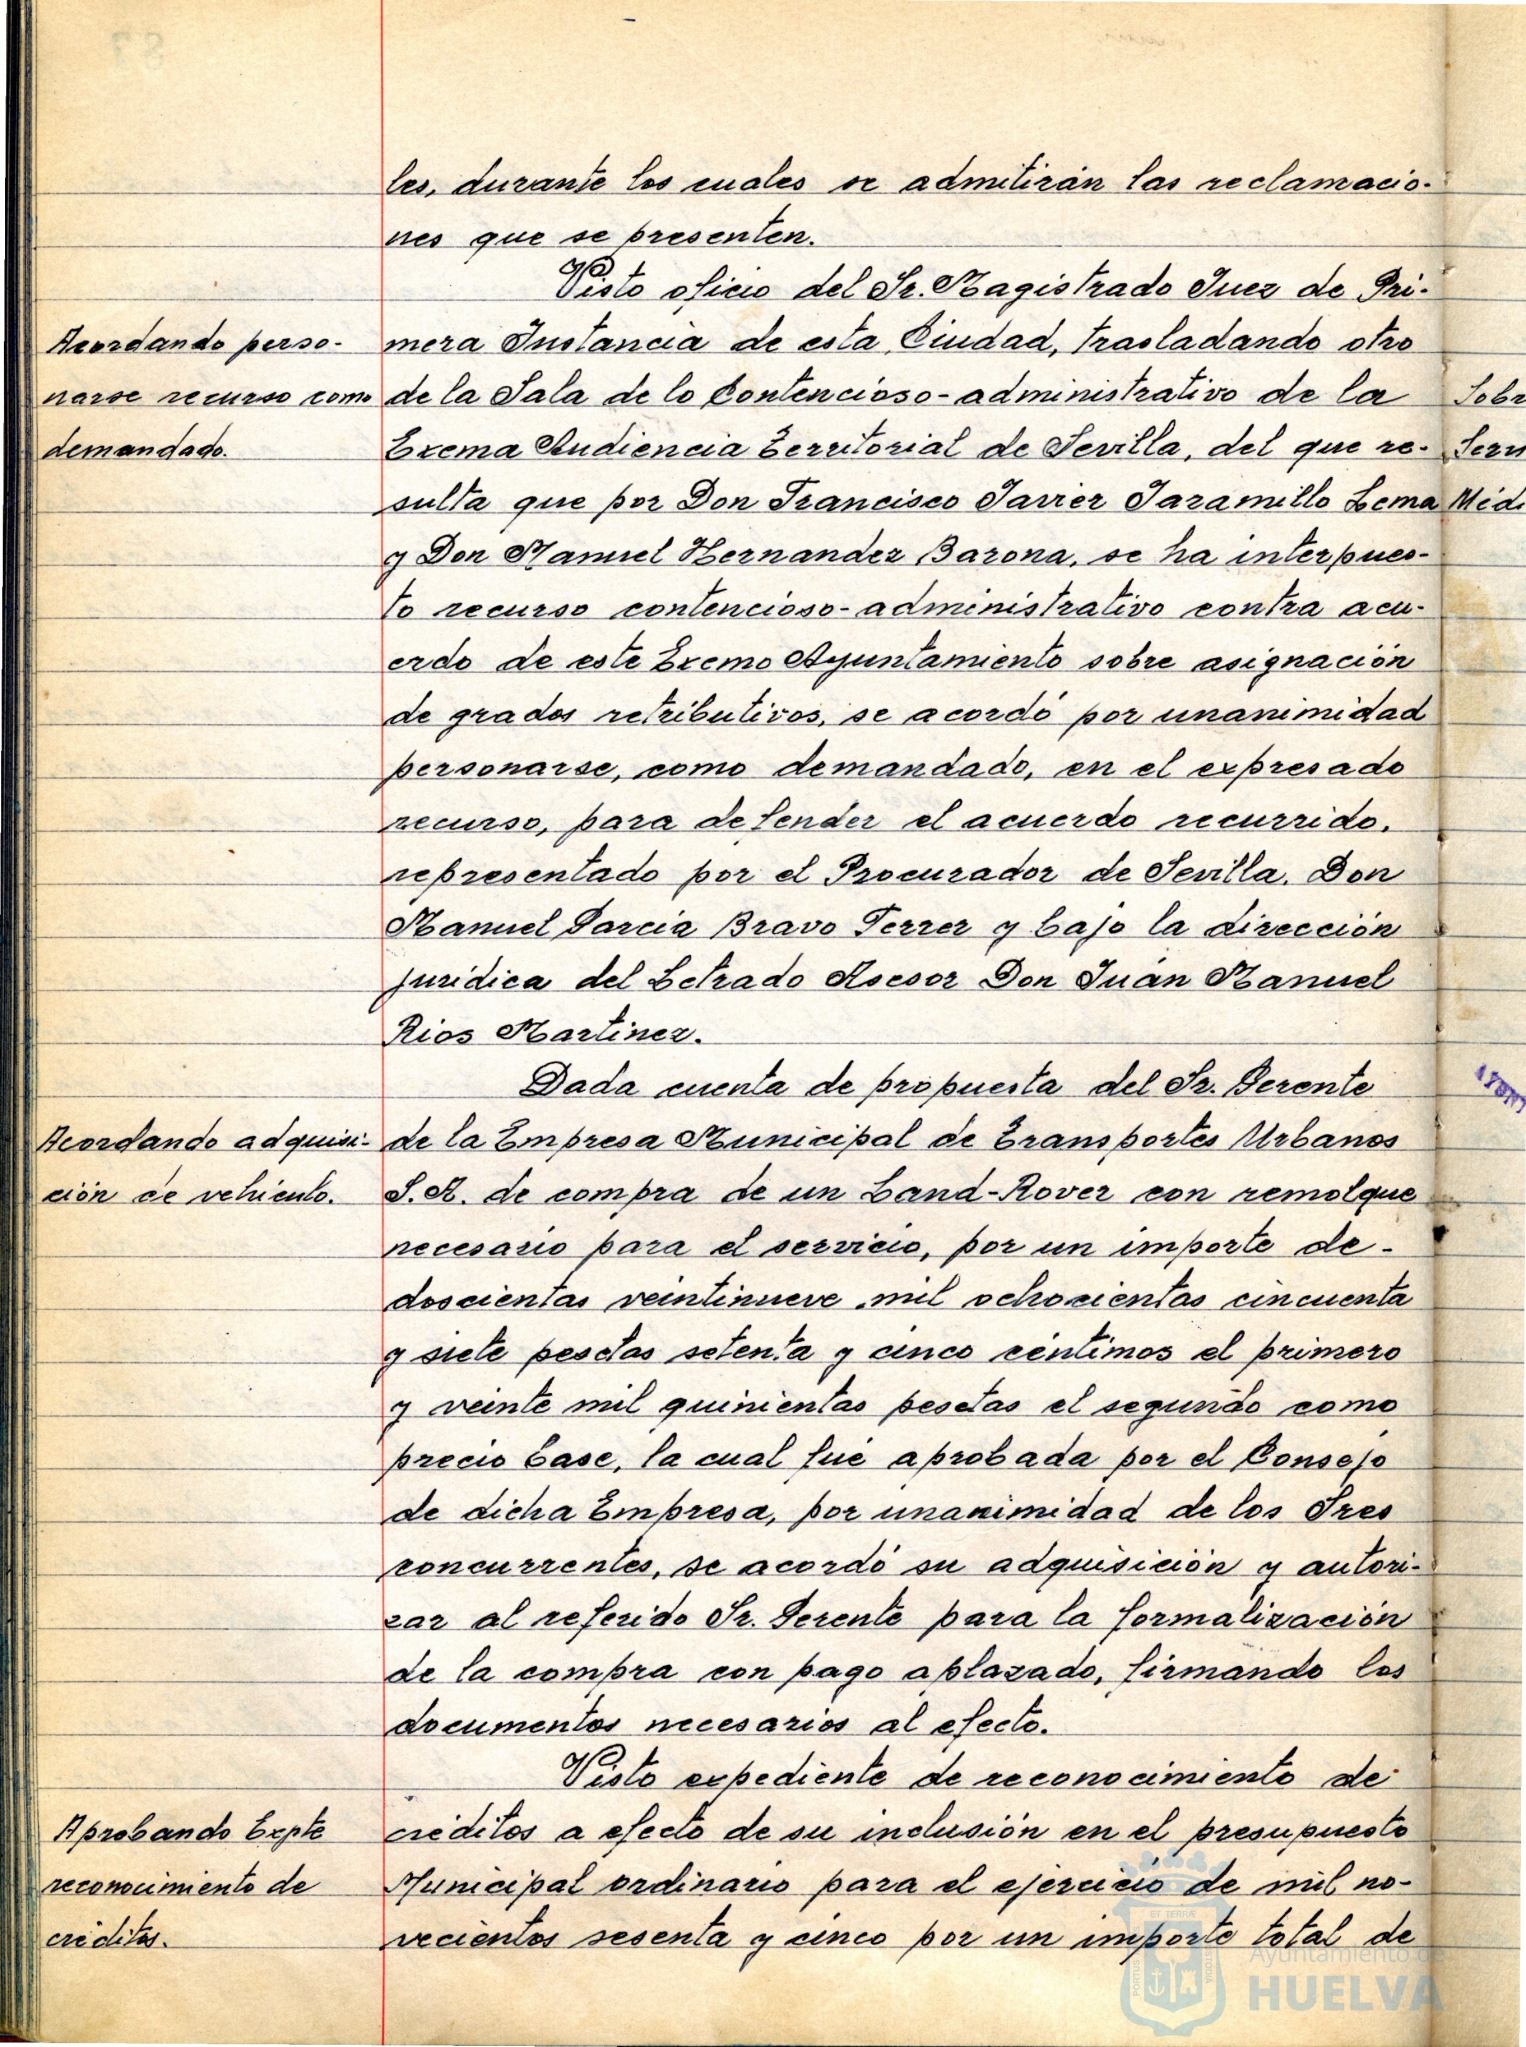 les, durante los cuales se admitirán las reclamacio-
nes que se presenten.
Visto oficio del Sr. Magistrado Juez de Pri-
Acordando perso-
narse recurso como
demandado.
mera Instancia de esta Ciudad, trasladando otro
de la Sala de lo Contencioso-administrativo de la
Excma Audiencia Territorial de Sevilla, del que re-
sulta que por Don Francisco Javier Jaramillo Lema
y Don Manuel Hernandez Barona, se ha interpues-
to recurso contencioso-administrativo contra acu-
erdo de este Excmo Ayuntamiento sobre asignación
de grados retributivos, se acordó por unanimidad
personarse, como demandado, en el expresado
recurso, para defender el acuerdo recurrido,
representado por el Procurador de Sevilla, Don
Manuel Garcia Bravo Ferrer y bajo la dirección
jurídica del Letrado Asesor Don Juan Manuel
Rios Martinez.
Dada cuenta de propuesta del Sr. Gerente
Acordando adquisi-
ción de vehículo.
de la Empresa Municipal de Transportes Urbanos
S.A. de compra de un Land-Rover con remolque
necesario para el servicio, por un importe de-
doscientas veintinueve mil ochocientas cincuenta
y siete pesetas setenta y cinco céntimos el primero
y veinte mil quinientas pesetas el segundo como
precio base, la cual fué aprobada por el Consejo
de dicha Empresa, por unanimidad de los Sres
concurrentes, se acordó su adquisición y autori-
zar al referido Sr. Gerente para la formalización
de la compra con pago aplazado, firmando los
documentos necesarios al efecto.
Visto expediente de reconocimiento de
Aprobando Expte
reconocimiento de
créditos.
créditos a efecto de su inclusión en el presupuesto
Municipal ordinario para el ejercicio de mil no-
vecientos sesenta y cinco por un importe total de
Ayuntamiento de
HUELVA